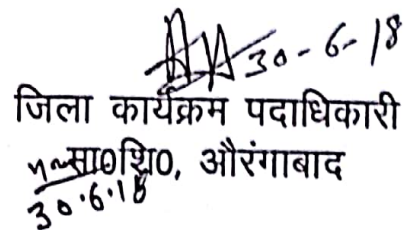 30-6-18
जिला कार्यक्रम पदाधिकारी
मा०शि०, औरंगाबाद
30.6.18